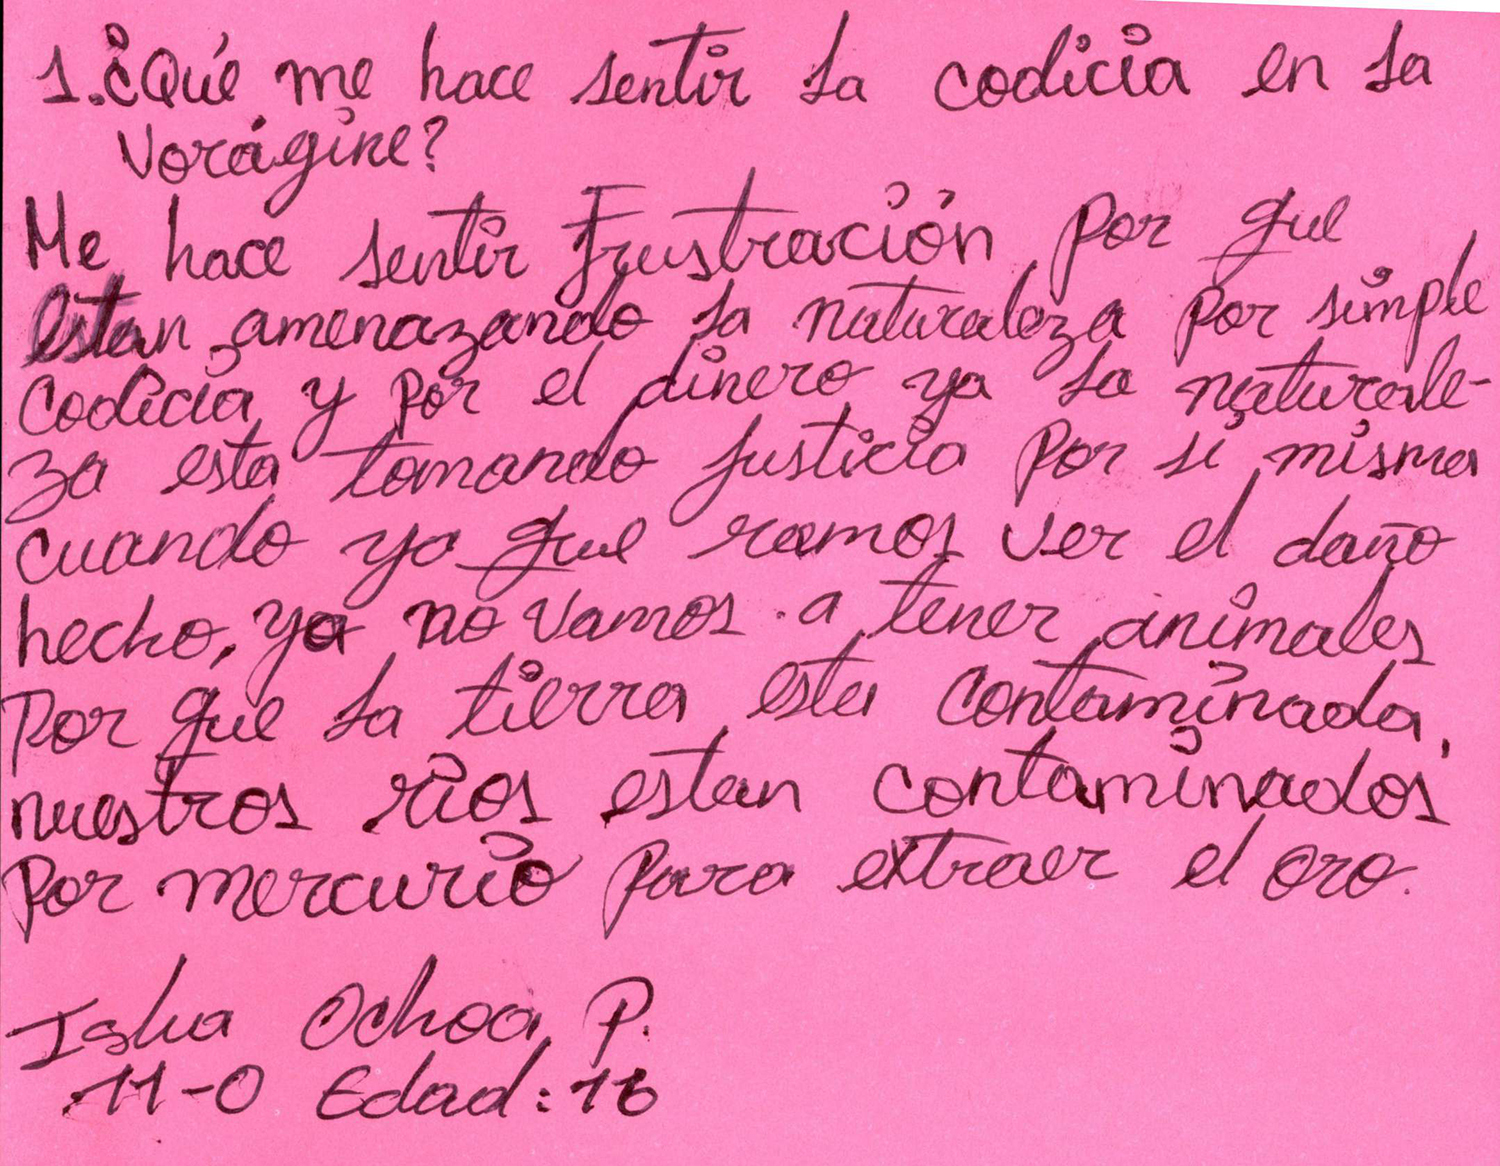 1. ¿Qué me hace sentir la codicia en la
Vorágine?
Me hace sentir Frustración por que
estan amenazando la naturaleza por simple
codicia y por el dinero ya la naturale-
za esta tomando justicia por si misma
cuando ya que ramos ver el daño
hecho, ya no vamos a tener animales
por que la tierra esta contaminada,
nuestros rios estan contaminados
por mercurio para extraer el oro.
Ochoa P.
11-0 Edad: 16